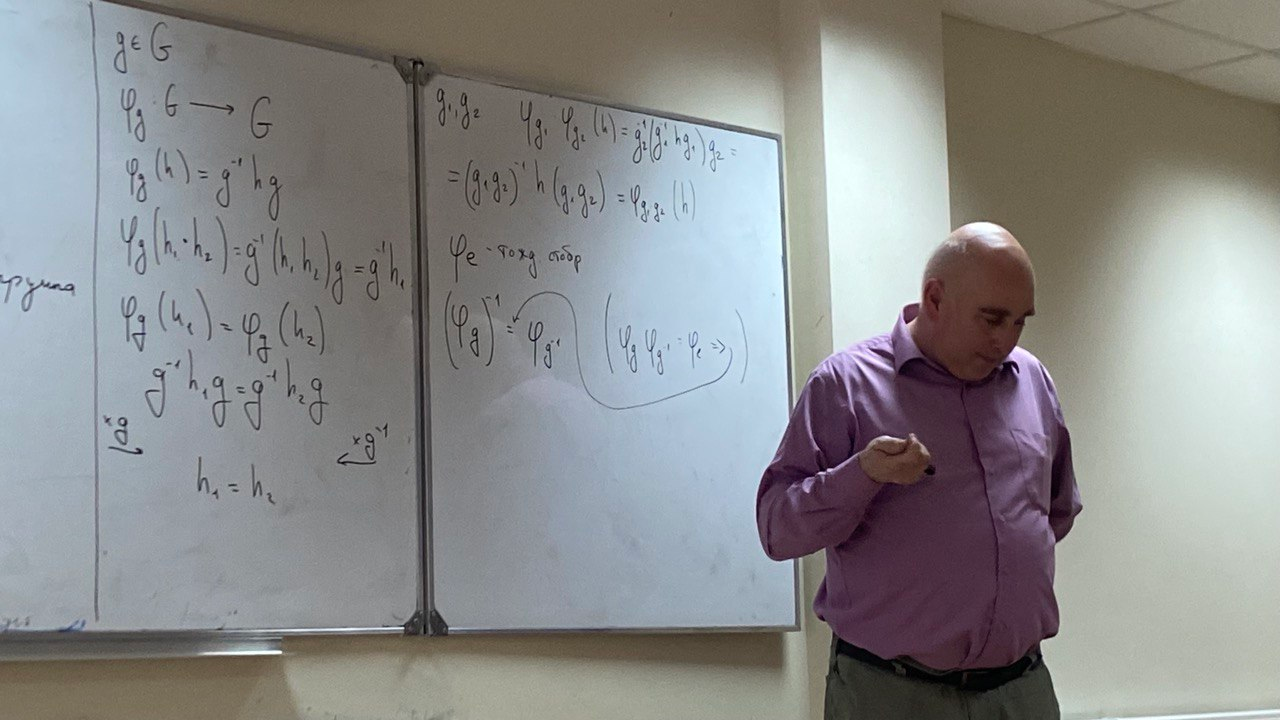 группа
g ∈ G
φ_g : G → G
φ_g(h) = g⁻¹hg
φ_g(h₁·h₂) = g⁻¹(h₁h₂)g = g⁻¹h₁
φ_g(h₁) = φ_g(h₂)
g⁻¹h₁g = g⁻¹h₂g
×g → ← ×g⁻¹
h₁ = h₂
g₁,g₂ φ_g₁ φ_g₂(h) = g₂⁻¹(g₁⁻¹hg₁)g₂ =
= (g₁g₂)⁻¹ h (g₁g₂) = φ_g₁g₂(h)
φ_e - тожд отобр
(φ_g)⁻¹ = φ_g⁻¹ (φ_g φ_g⁻¹ = φ_e ⇒)